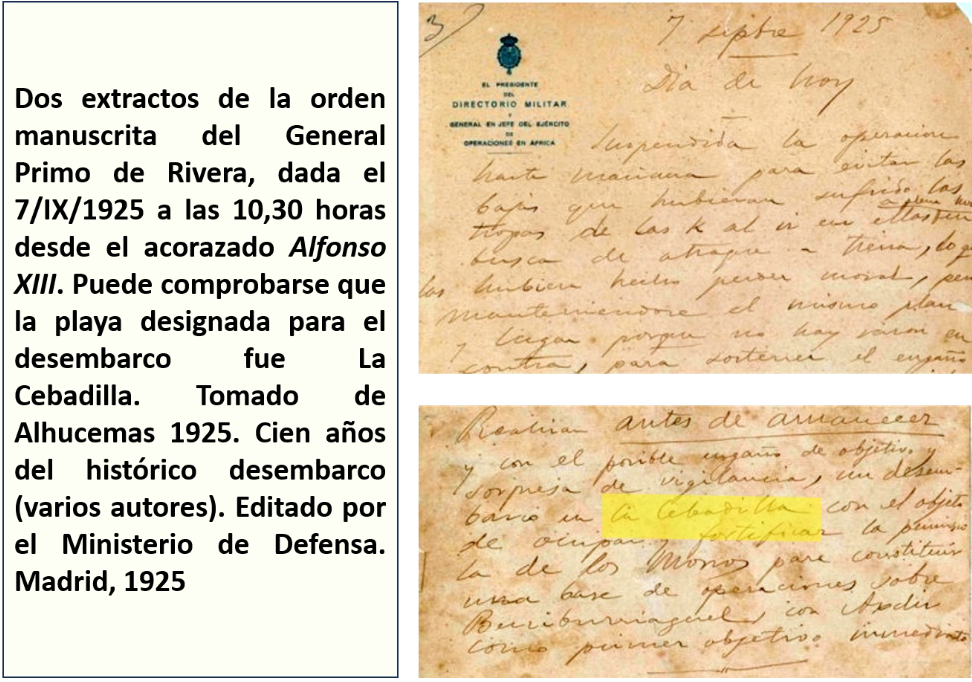 Dos extractos de la orden
manuscrita del General
Primo de Rivera, dada el
7/IX/1925 a las 10,30 horas
desde el acorazado Alfonso
XIII. Puede comprobarse que
la playa designada para el
desembarco fue La
Cebadilla. Tomado de
Alhucemas 1925. Cien años
del histórico desembarco
(varios autores). Editado por
el Ministerio de Defensa.
Madrid, 1925
3)
7 sepbre 1925
EL PRESIDENTE
DEL
DIRECTORIO MILITAR
Y
GENERAL EN JEFE DEL EJÉRCITO
DE
OPERACIONES EN ÁFRICA
Día de hoy
Suspendida la operacion
hasta mañana para evitar las
bajas que hubieran sufrido las
tropas de las K al ir en ellas
busca de atraque a tierra, lo q
las hubiera hecho perder moral, pero
manteniendose el mismo plan
y lugar porque no hay razon en
contra, para sostener el engaño
Realizar antes de amanecer
y con el posible engaño de objetivo y
sorpresa de vigilancia, un desem-
barco en la Cebadilla con el objeto
de ocupar y fortificar la peninsu
la de los Morros para constituir
una base de operaciones sobre
Beniburriaguel, con Axdir
como primer objetivo inmediato